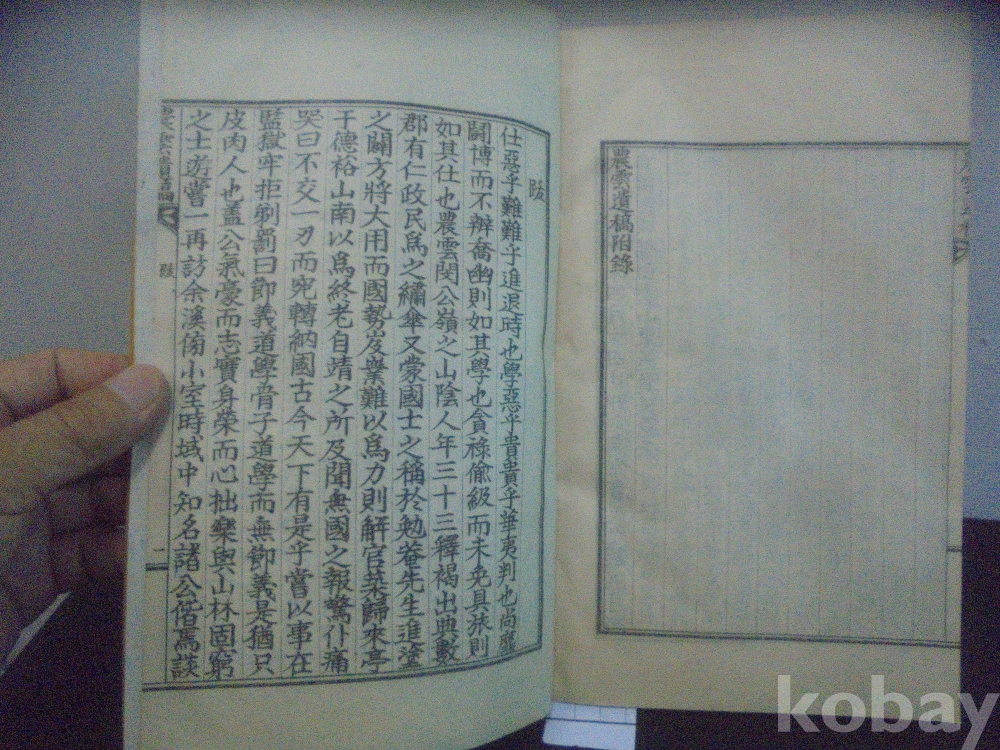 農雲遺稿附錄
跋
仕惡乎難難乎進退時也學惡乎貴貴乎華夷判也尚靡
闘博而不辨喬幽則如其學也貪祿偸級而未免具旅則
如其仕也農雲閔公嶺之山陰人年三十三釋褐出典數
郡有仁政民爲之繡傘又蒙國士之稱於勉菴先生進塗
之闢方將大用而國勢岌嶪難以爲力則解官菜歸來亭
于德裕山南以爲終老自靖之所及聞無國之報驚仆痛
哭曰不交一刃而宛轉納國古今天下有是乎嘗以事在
監獄牢拒剃罰曰節義道學骨子道學而無節義是猶只
皮肉人也盖公氣豪而志實身榮而心拙樂與山林固窮
之士遊嘗一再訪余溪傍小室時域中知名諸公偕焉談
跋
二
kobay